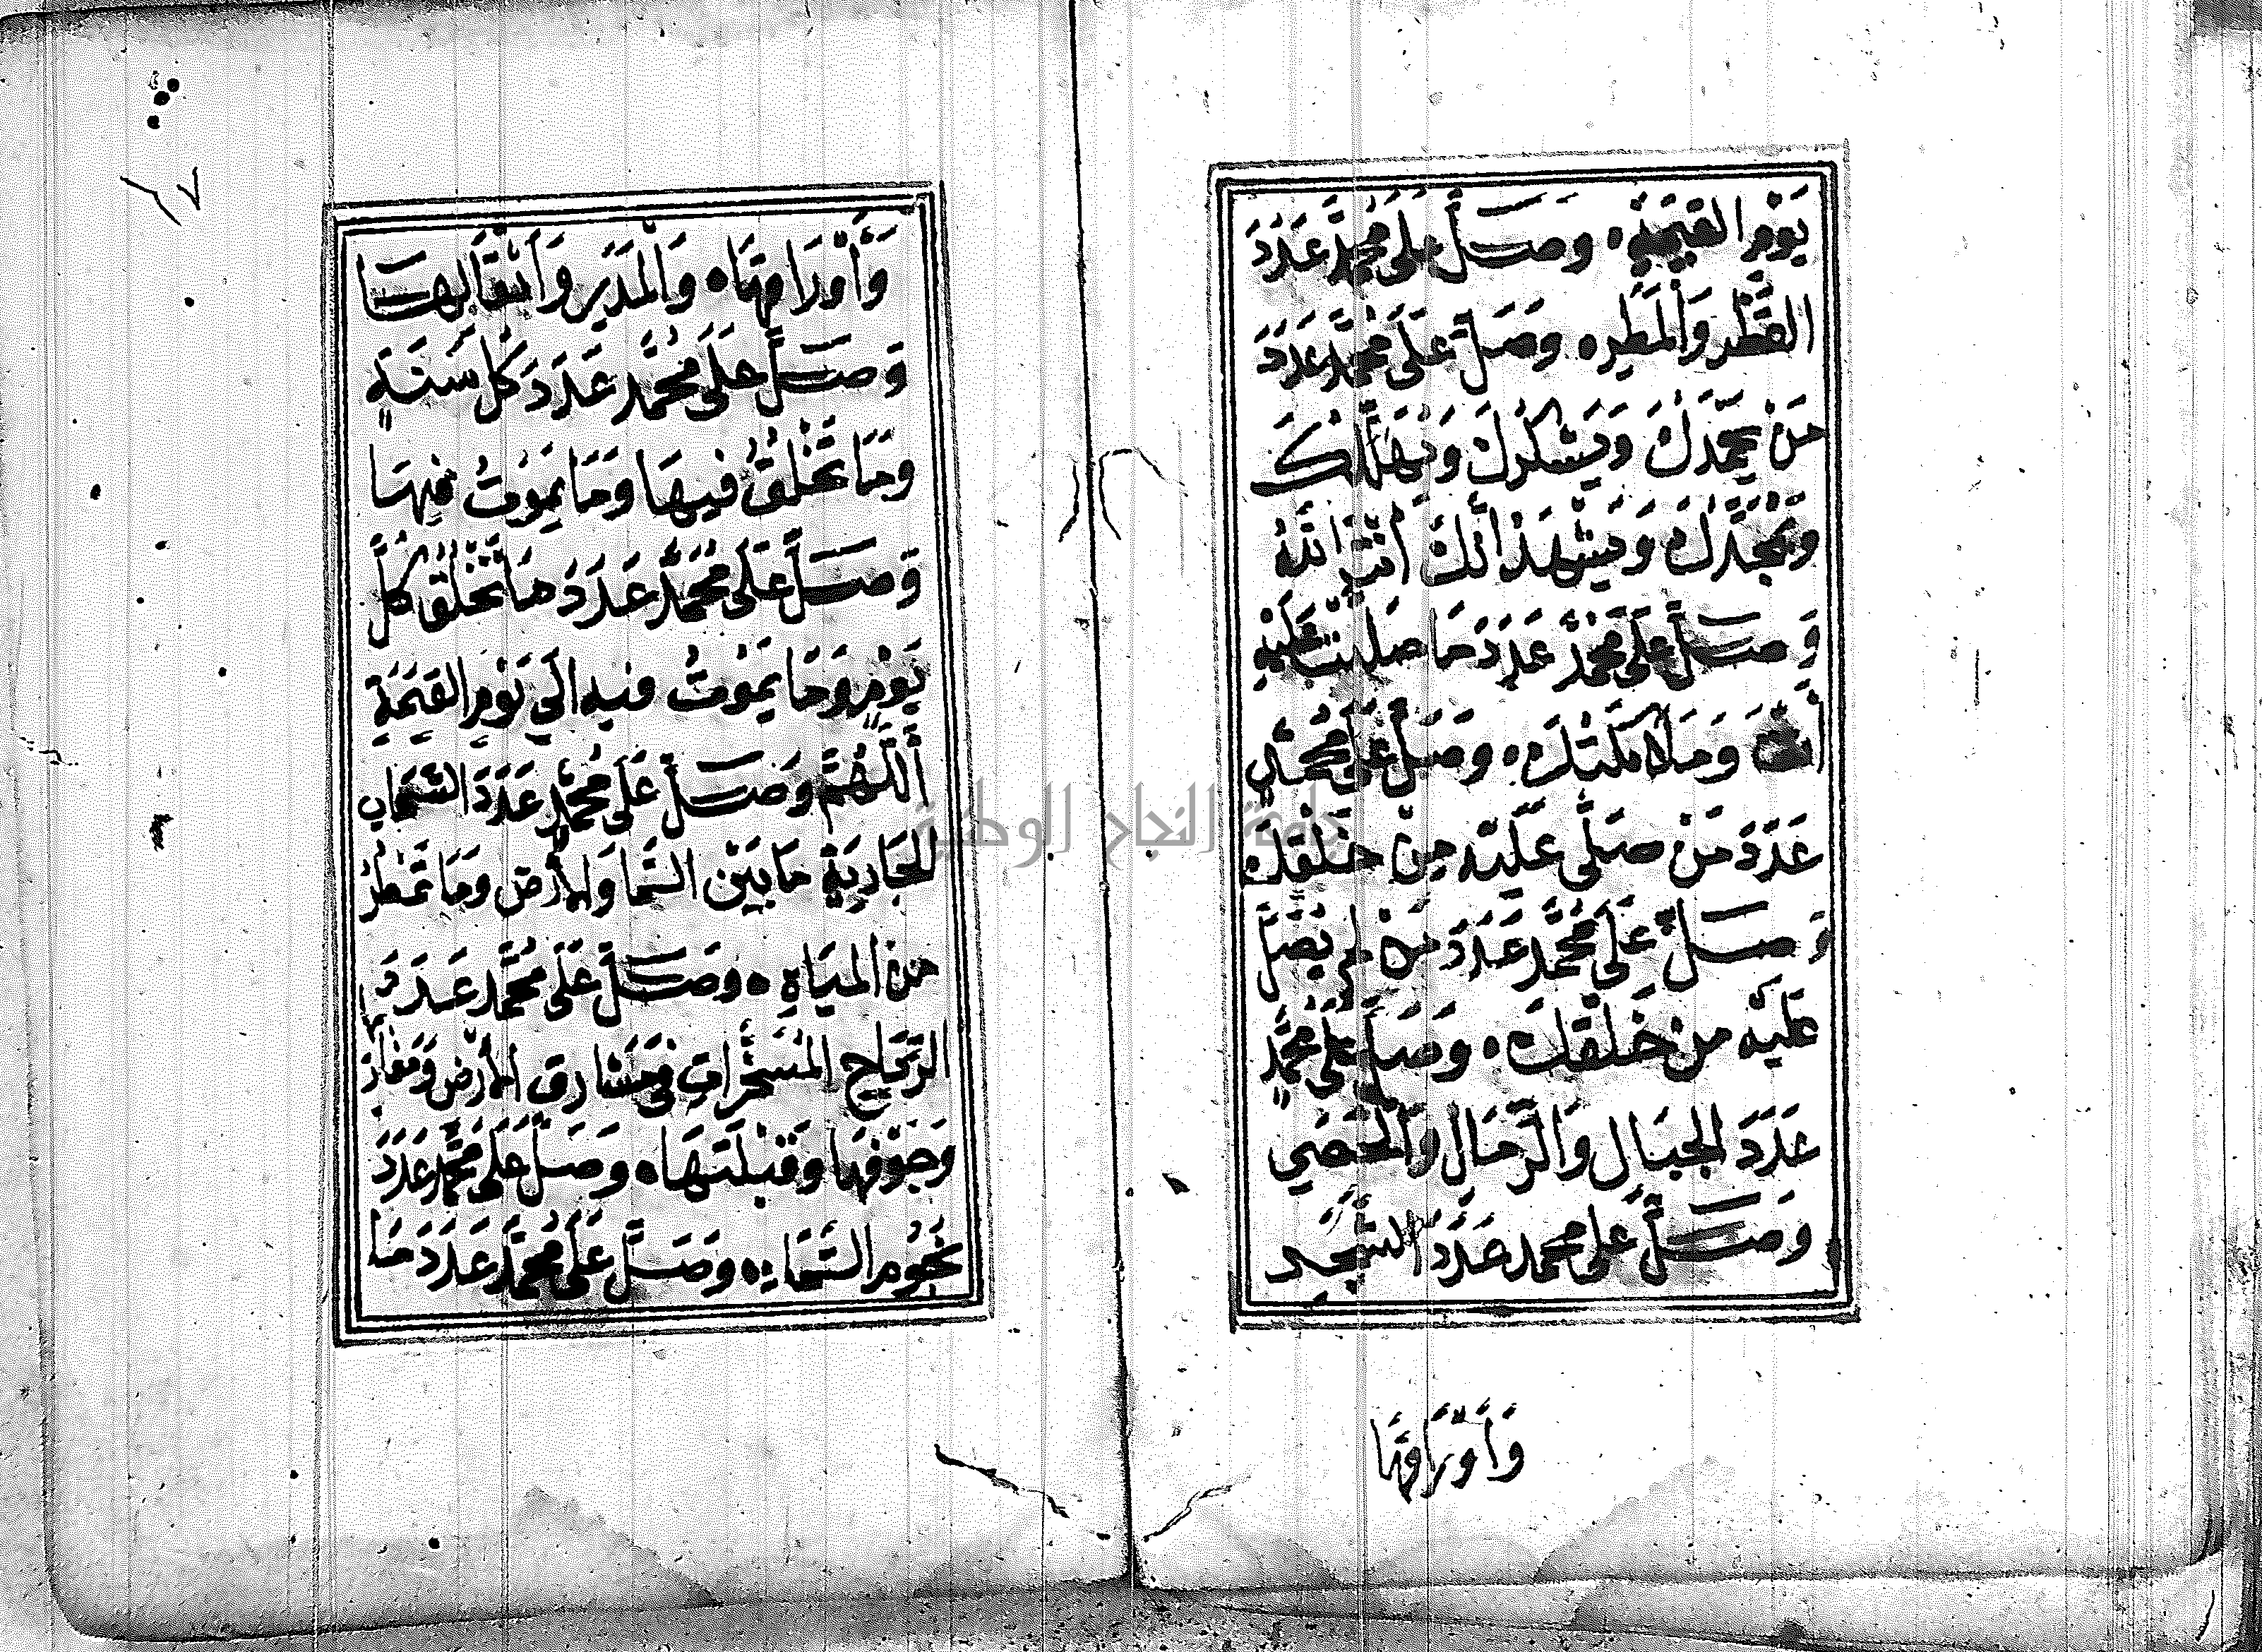 يَوْمِ القِيٰمَةِ وصَلِّ عَلَى مُحَمَّدٍ عَدَدَ
القَطْرِ وَالْمَطَرِ وَصَلِّ عَلَى مُحَمَّدٍ عَدَدَ
مَنْ يَحْمَدُكَ وَيَشْكُرُكَ وَيُهَلِّلُكَ
وَيُمَجِّدُكَ وَيَشْهَدُ أَنَّكَ أَنْتَ اللَّهُ
وَصَلِّ عَلَى مُحَمَّدٍ عَدَدَ مَا صَلَّيْتَ عَلَيْهِ
أَنْتَ وَمَلَائِكَتُكَ وَصَلِّ عَلَى مُحَمَّدٍ
عَدَدَ مَنْ صَلَّى عَلَيْهِ مِنْ خَلْقِكَ
وَصَلِّ عَلَى مُحَمَّدٍ عَدَدَ مَنْ لَمْ يُصَلِّ
عَلَيْهِ مِنْ خَلْقِكَ وَصَلِّ عَلَى مُحَمَّدٍ
عَدَدَ الجِبَالِ وَالرِّمَالِ وَالْحَصَى
وَصَلِّ عَلَى مُحَمَّدٍ عَدَدَ الشَّجَرِ
وَأَوْرَاقِهَا
وَأَوْرَاقِهَا وَالْمَدَرِ وَأَثْقَالِهَا
وَصَلِّ عَلَى مُحَمَّدٍ عَدَدَ كُلِّ سَنَةٍ
وَمَا تَخْلُقُ فِيهَا وَمَا يَمُوتُ فِيهَا
وَصَلِّ عَلَى مُحَمَّدٍ عَدَدَ مَا تَخْلُقُ كُلَّ
يَوْمٍ وَمَا يَمُوتُ فِيهِ إلَى يَوْمِ القِيٰمَةِ
أَللَّهُمَّ وَصَلِّ عَلَى مُحَمَّدٍ عَدَدَ السَّحَابِ
الجَارِيَةِ مَا بَيْنَ السَّمَا وَالأَرْضِ وَمَا تَمْطُرُ
مِنَ المِيَاهِ وَصَلِّ عَلَى مُحَمَّدٍ عَدَدَ
الرِّيَاحِ المُسَخَّرَاتِ فِي مَشَارِقِ الأَرْضِ وَمَغَارِبِهَا
وَجَوْفِهَا وَقِبْلَتِهَا وَصَلِّ عَلَى مُحَمَّدٍ عَدَدَ
نُجُومِ السَّمَاءِ وَصَلِّ عَلَى مُحَمَّدٍ عَدَدَ مَا
جامعة النجاح الوطنية